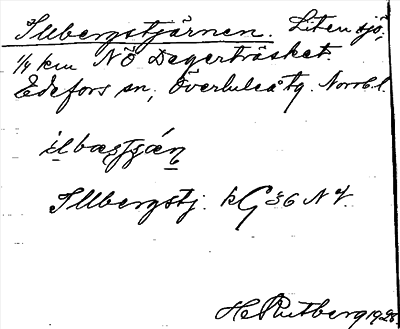 Illbergstjärnen. Liten sjö,
1/4 km NÖ Degerträsket.
Edefors sn, Överluleå tg. Norrb. l.
ilbæstjæn
Illbergstj. kG 36 NV.
H Rutberg 1928.